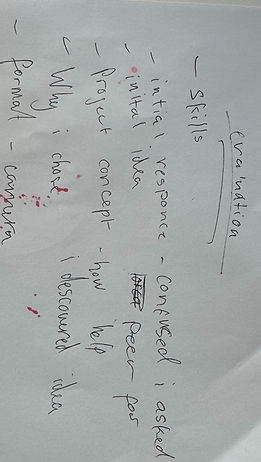 - evaluation
- Skills
- intial responce - confused i asked
- inital idea peer for
- Project concept - how help
- Why i chose i descovered idea
- format - camera